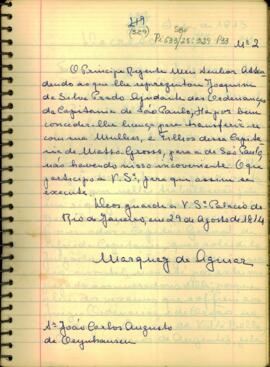 219
(329)
P. 633/25:329 P33
Nº 2
O Principe Regente Meu Senhor Atten
dendo ao que lhe representou Joaquim
da Silva Prado Ajudante das Ordenanças
da Capitania de São Paulo, Ha por bem
conceder-lhe licença para transferir-se
com sua Mulher, e Filhos dessa Capita
nia de Matto Grosso, para a de São Paulo,
não havendo nisso inconveniente. O que
participo a V. Sª, para que assim se
execute.
Deos guarde a V. Sª Palacio do
Rio de Janeiro, em 29 de Agosto de 1814
Marquez de Aguiar
Sr. João Carlos Augusto
de Oeynhausen